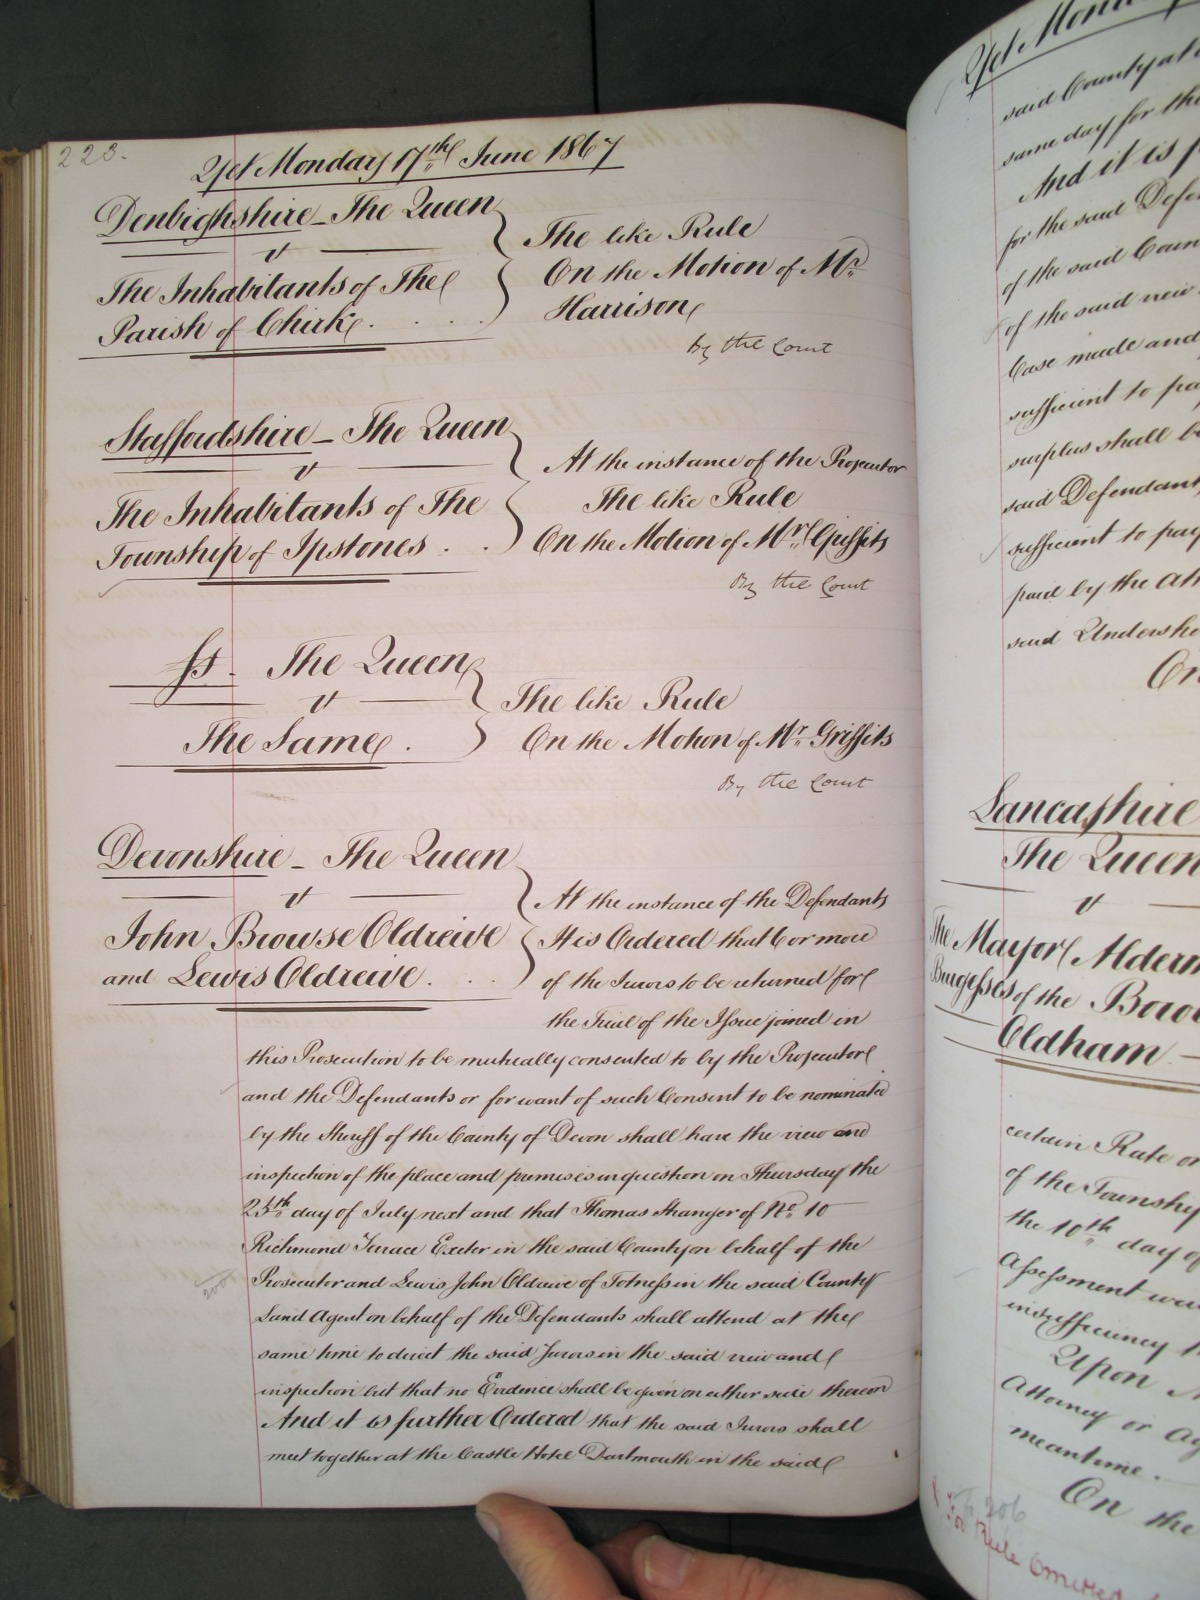 223.
Yet Monday 17th June 1867
Denbighshire - The Queen
v
The Inhabitants of The
Parish of Chirk . . . .
The like Rule
On the Motion of Mr.
Harrison
By the Court
Staffordshire - The Queen
v
The Inhabitants of The
Township of Ipstones . .
At the instance of the Prosecutor
The like Rule
On the Motion of Mr. Griffits
By the Court
Ss. The Queen
v
The Same .
The like Rule
On the Motion of Mr. Griffits
By the Court
Devonshire - The Queen
v
John Browse Oldreive
and Lewis Oldreive . . .
At the instance of the Defendants
It is Ordered that 6 or more
of the Jurors to be returned for
the Trial of the Issue joined in
this Prosecution to be mutually consented to by the Prosecutor
and the Defendants or for want of such Consent to be nominated
by the Sheriff of the County of Devon shall have the view and
inspection of the place and premises in question on Thursday the
25th day of July next and that Thomas Hanger of No. 10
Richmond Terrace Exeter in the said County on behalf of the
Prosecutor and Lewis John Oldreive of Totness in the said County
Land Agent on behalf of the Defendants shall attend at the
same time to direct the said Jurors in the said view and
inspection but that no Evidence shall be given on either side thereon
And it is further Ordered that the said Jurors shall
meet together at the Castle Hotel Dartmouth in the said
Yet Monday
said County at
same day for the
And it is
for the said Defen
of the said Coun
of the said view
Case made and
sufficient to pa
surplus shall b
said Defendant
sufficient to pay
paid by the Att
said Undershe
On
Lancashire
The Queen
v
The Mayor Alderm
Burgesses of the Borou
Oldham
certain Rate or
of the Townsh
the 10th day of
Assessment wa
insufficiency
Upon
Attorney or Ag
meantime.
On the
206
For Rule Omitted